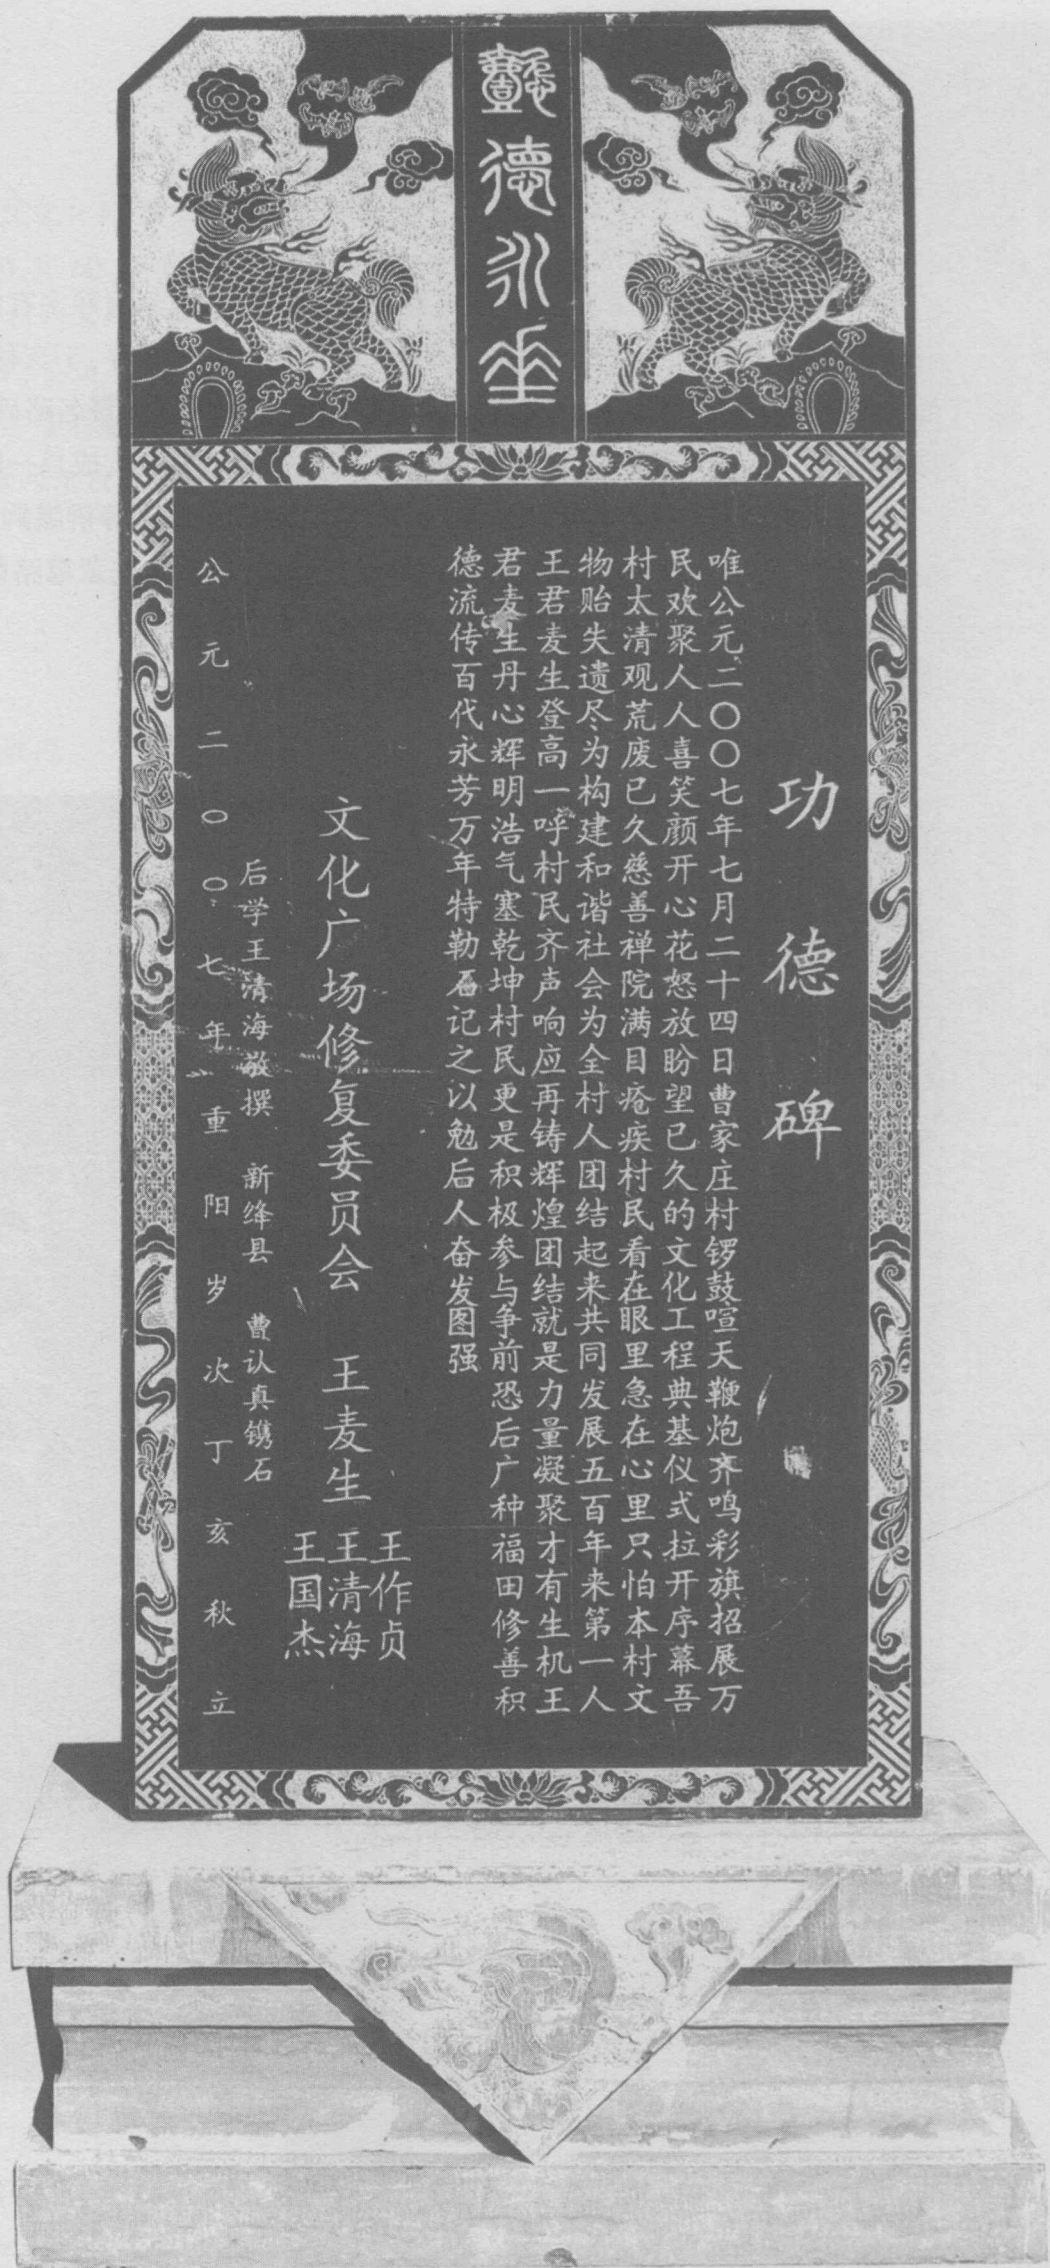 懿德永垂
功德碑
唯公元二〇〇七年七月二十四日曹家庄村锣鼓喧天鞭炮齐鸣彩旗招展万
民欢聚人人喜笑颜开心花怒放盼望已久的文化工程典基仪式拉开序幕吾
村太清观荒废已久慈善禅院满目疮疾村民看在眼里急在心里只怕本村文
物贻失遗尽为构建和谐社会为全村人团结起来共同发展五百年来第一人
王君麦生登高一呼村民齐声响应再铸辉煌团结就是力量凝聚才有生机王
君麦生丹心辉明浩气塞乾坤村民更是积极参与争前恐后广种福田修善积
德流传百代永芳万年特勒石记之以勉后人奋发图强
文化广场修复委员会 王麦生
王作贞
王清海
王国杰
后学王清海敬撰 新绛县 曹认真镌石
公元二〇〇七年重阳岁次丁亥秋立